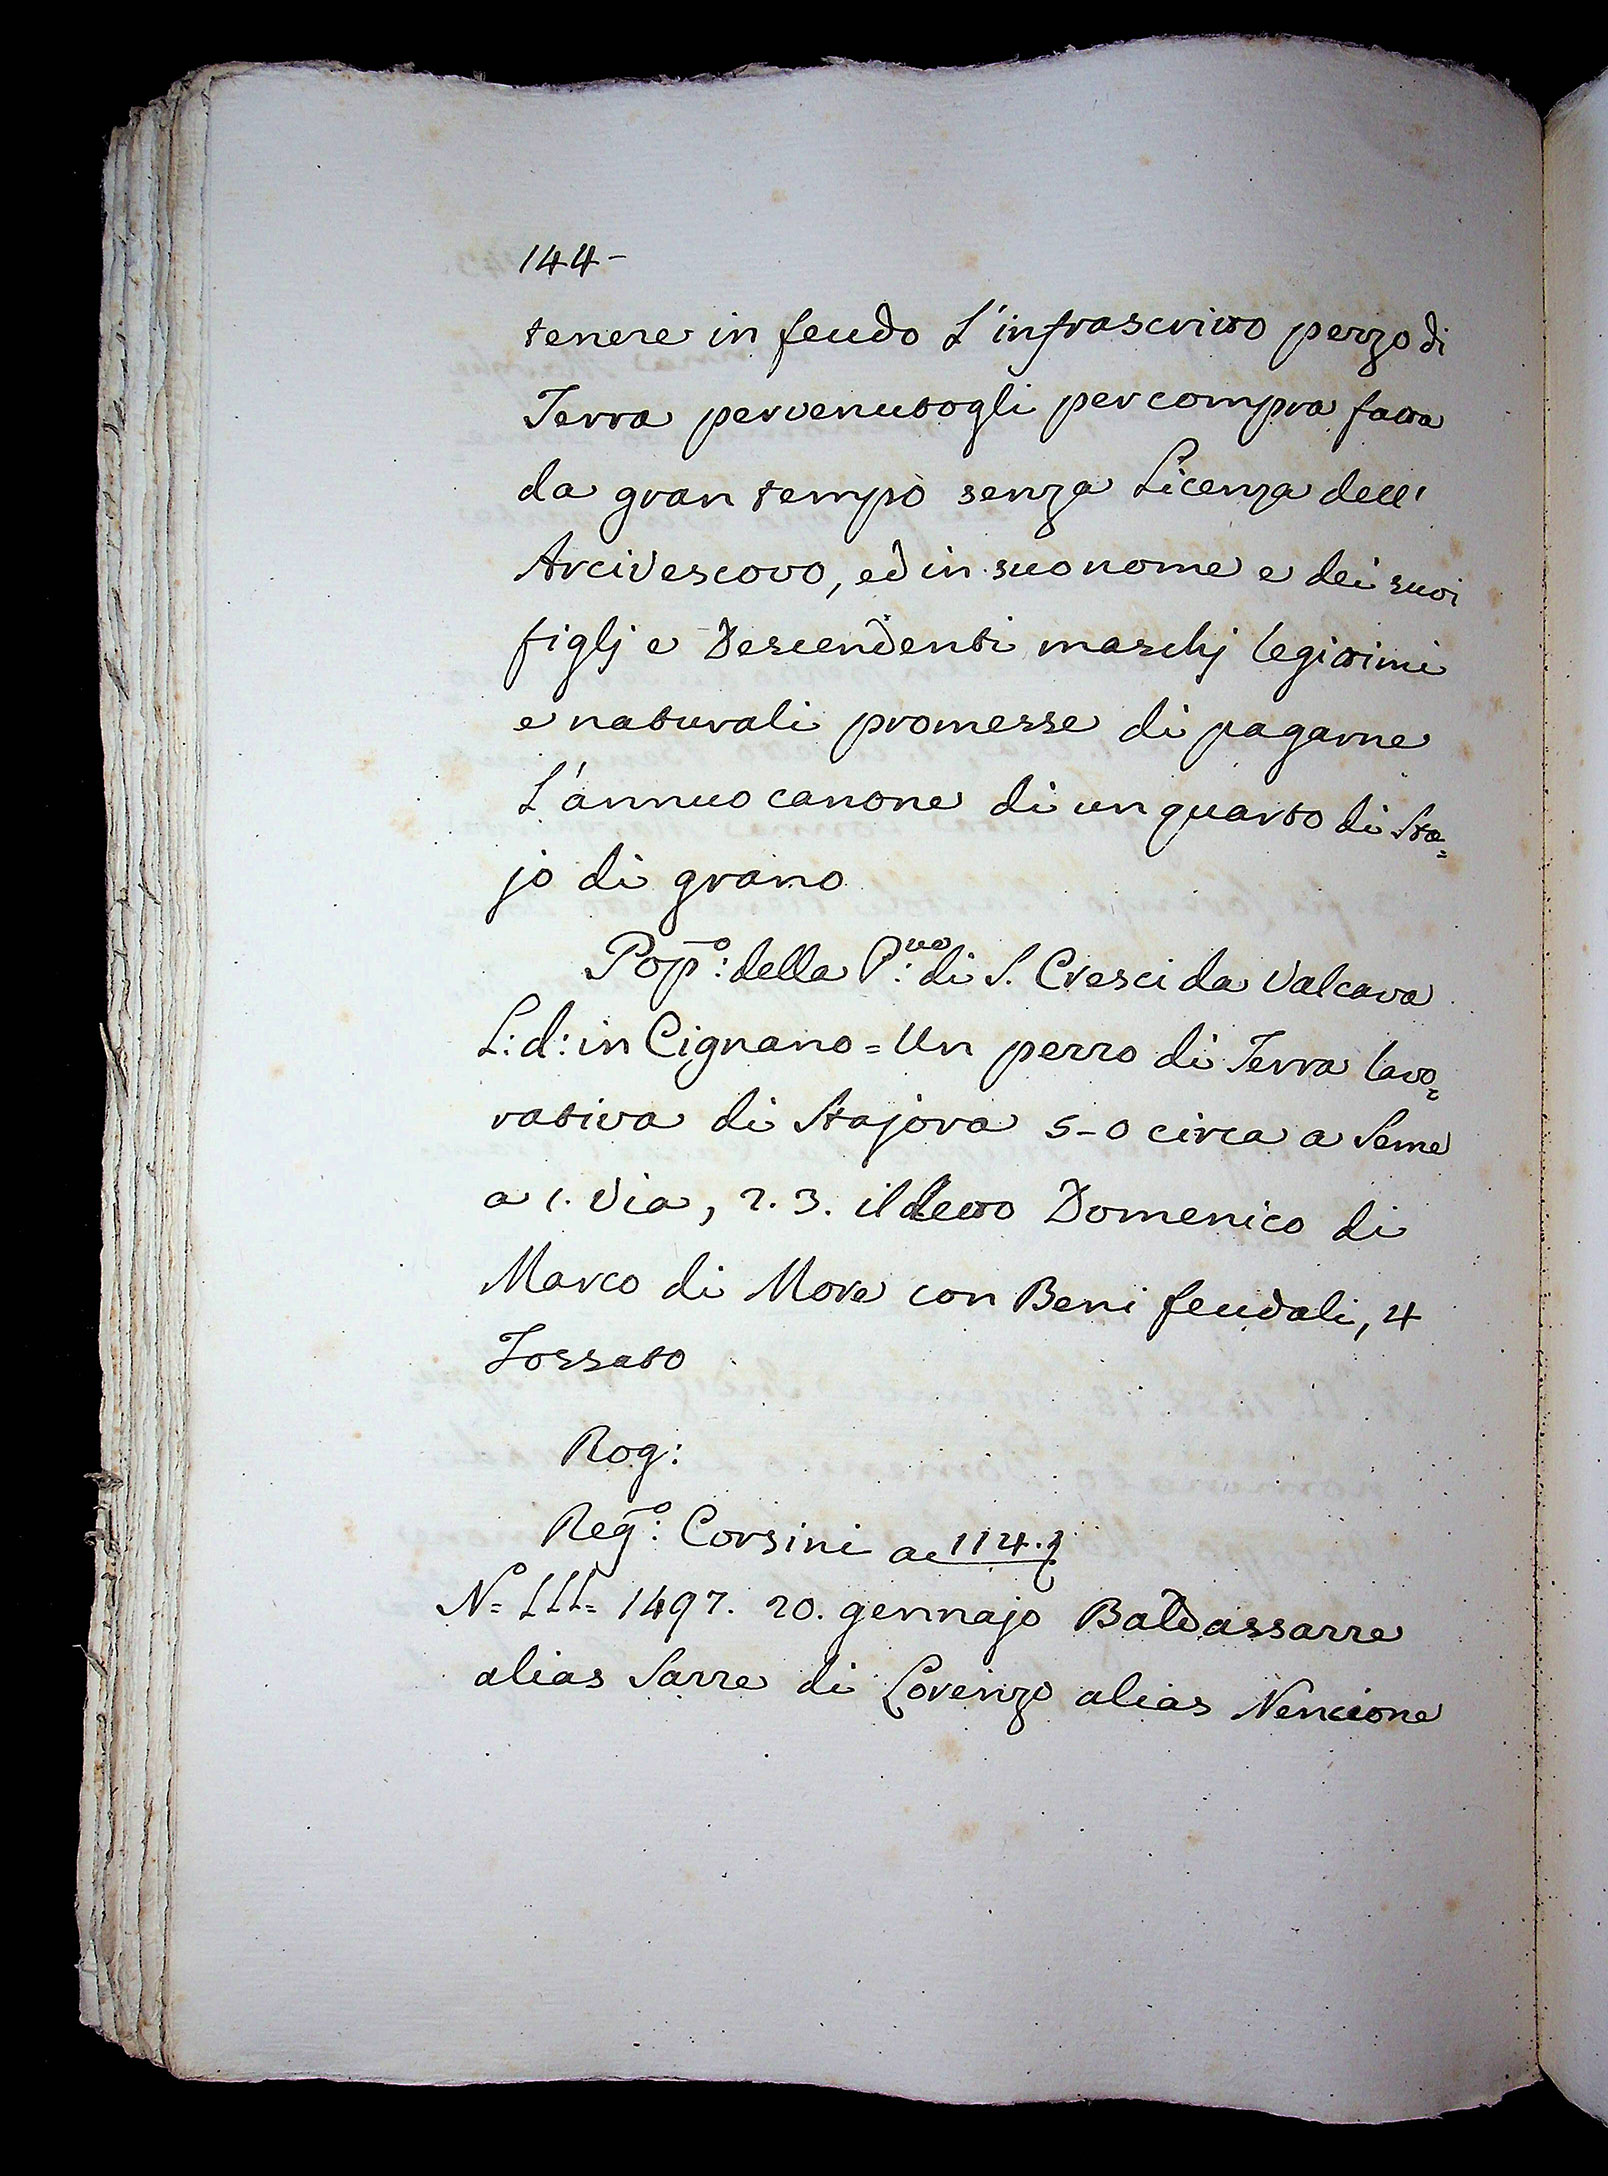 144-
tenere in feudo L'infrascritto pezzo di
Terra pervenutogli per compra fatta
da gran tempo senza Licenza dell'
Arcivescovo, ed in suo nome e dei suoi
figlj e Descendenti maschj legittimi
e naturali promesse di pagarne
L'annuo canone di un quarto di Sta=
jo di grano
Pop:º della P:ve di S. Cresci da Valcava
L: d: in Cignano = Un pezzo di Terra lavo=
rativa di Stajora 5-0 circa a Seme
a 1. Via, 2. 3. il detto Domenico di
Marco di More con Beni feudali, 4
Fossato
Rog:
Reg:º Corsini a 114.
Nº= LII= 1497. 20. gennajo Baldassarre
alias Sarre di Lorenzo alias Nencione